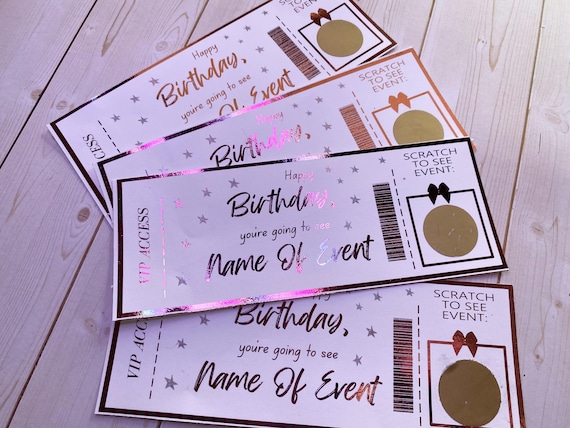 VIP ACCESS
Happy
Birthday,
you're going to see
Name Of Event
CCESS
SCRATCH
TO SEE
EVENT:
Happy
Birthday,
Name Of Event
SCRATCH
TO SEE
EVENT:
VIP ACCESS
Happy
Birthday,
you're going to see
Name Of Event
SCRATCH
TO SEE
EVENT:
VIP ACCESS
Birthday,
you're going to see
Name Of Event